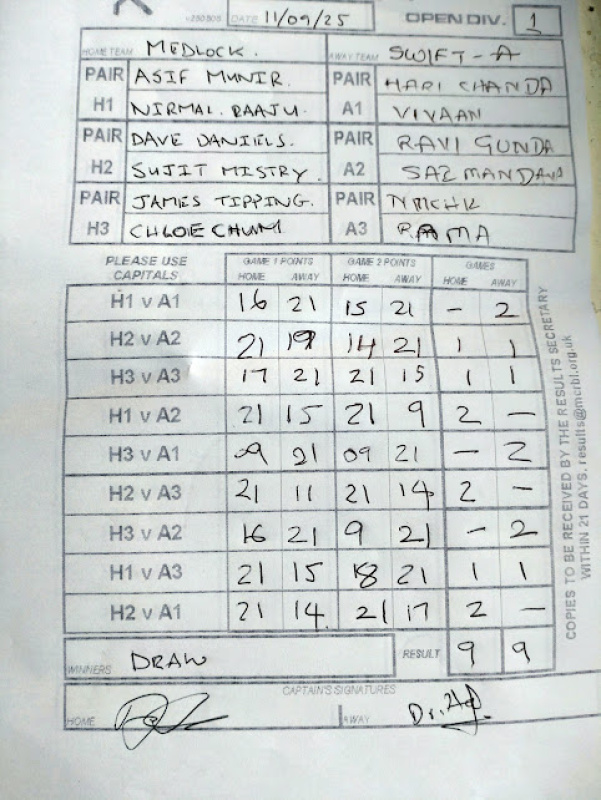 DATE 11/09/25 OPEN DIV. 1
HOME TEAM MEDLOCK. AWAY TEAM SWIFT-A
PAIR ASIF MUNIR. PAIR HARI CHANDA
H1 NIRMAL. RAAJU. A1 VIVAAN
PAIR DAVE DANIELS. PAIR RAVI GUNDA
H2 SUJIT MISTRY. A2
PAIR JAMES TIPPING. PAIR
H3 CHLOE CHUM A3 RAMA
PLEASE USE CAPITALS GAME 1 POINTS GAME 2 POINTS GAMES
HOME AWAY HOME AWAY HOME AWAY
H1 v A1 16 21 15 21 - 2
H2 v A2 21 19 14 21 1 1
H3 v A3 17 21 21 15 1 1
H1 v A2 21 15 21 9 2 -
H3 v A1 09 21 09 21 - 2
H2 v A3 21 11 21 14 2 -
H3 v A2 16 21 9 21 - 2
H1 v A3 21 15 18 21 1 1
H2 v A1 21 14. 21 17 2 -
WINNERS DRAW RESULT 9 9
CAPTAIN'S SIGNATURES
HOME AWAY
COPIES TO BE RECEIVED BY THE RESULTS SECRETARY
WITHIN 21 DAYS. results@mcrbl.org.uk